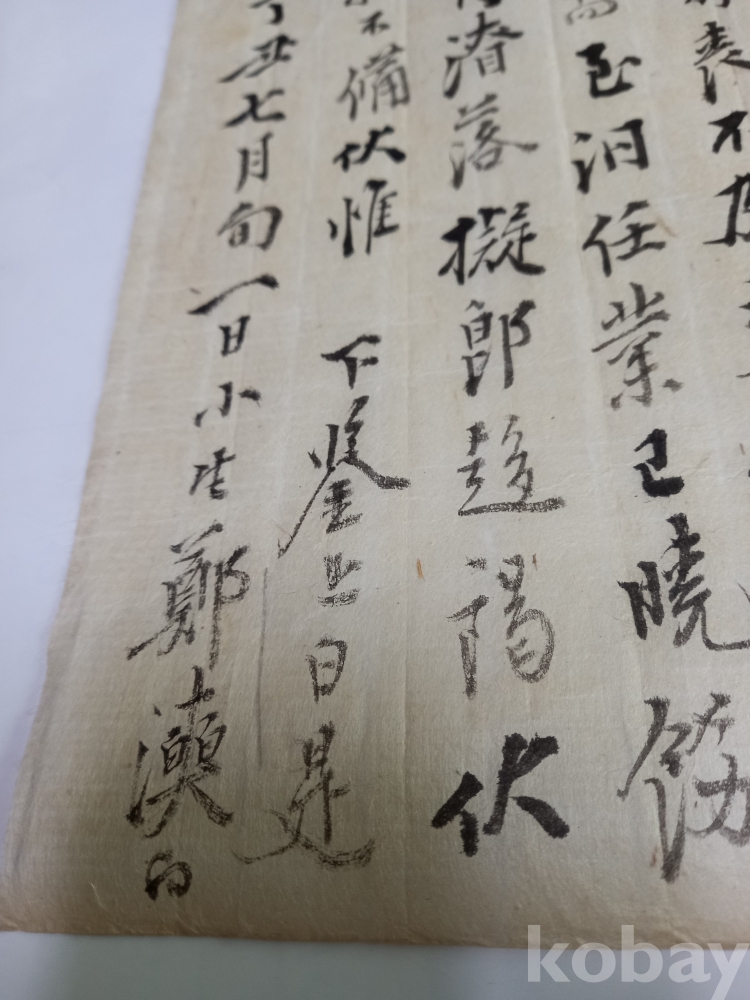 喪不
至汨任業已曉飭
落擬郎趍謁伏
不備伏惟 下鑒上白是
丑七月旬一日小生鄭
kobay